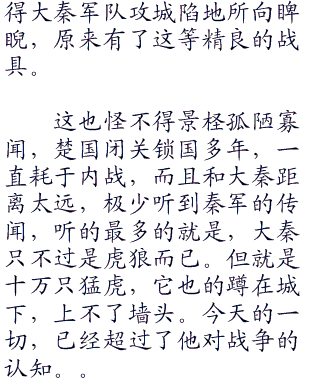 得大秦军队攻城陷地所向睥
睨，原来有了这等精良的战
具。
这也怪不得景柽孤陋寡
闻，楚国闭关锁国多年，一
直耗于内战，而且和大秦距
离太远，极少听到秦军的传
闻，听的最多的就是，大秦
只不过是虎狼而已。但就是
十万只猛虎，它也的蹲在城
下，上不了墙头。今天的一
切，已经超过了他对战争的
认知。。